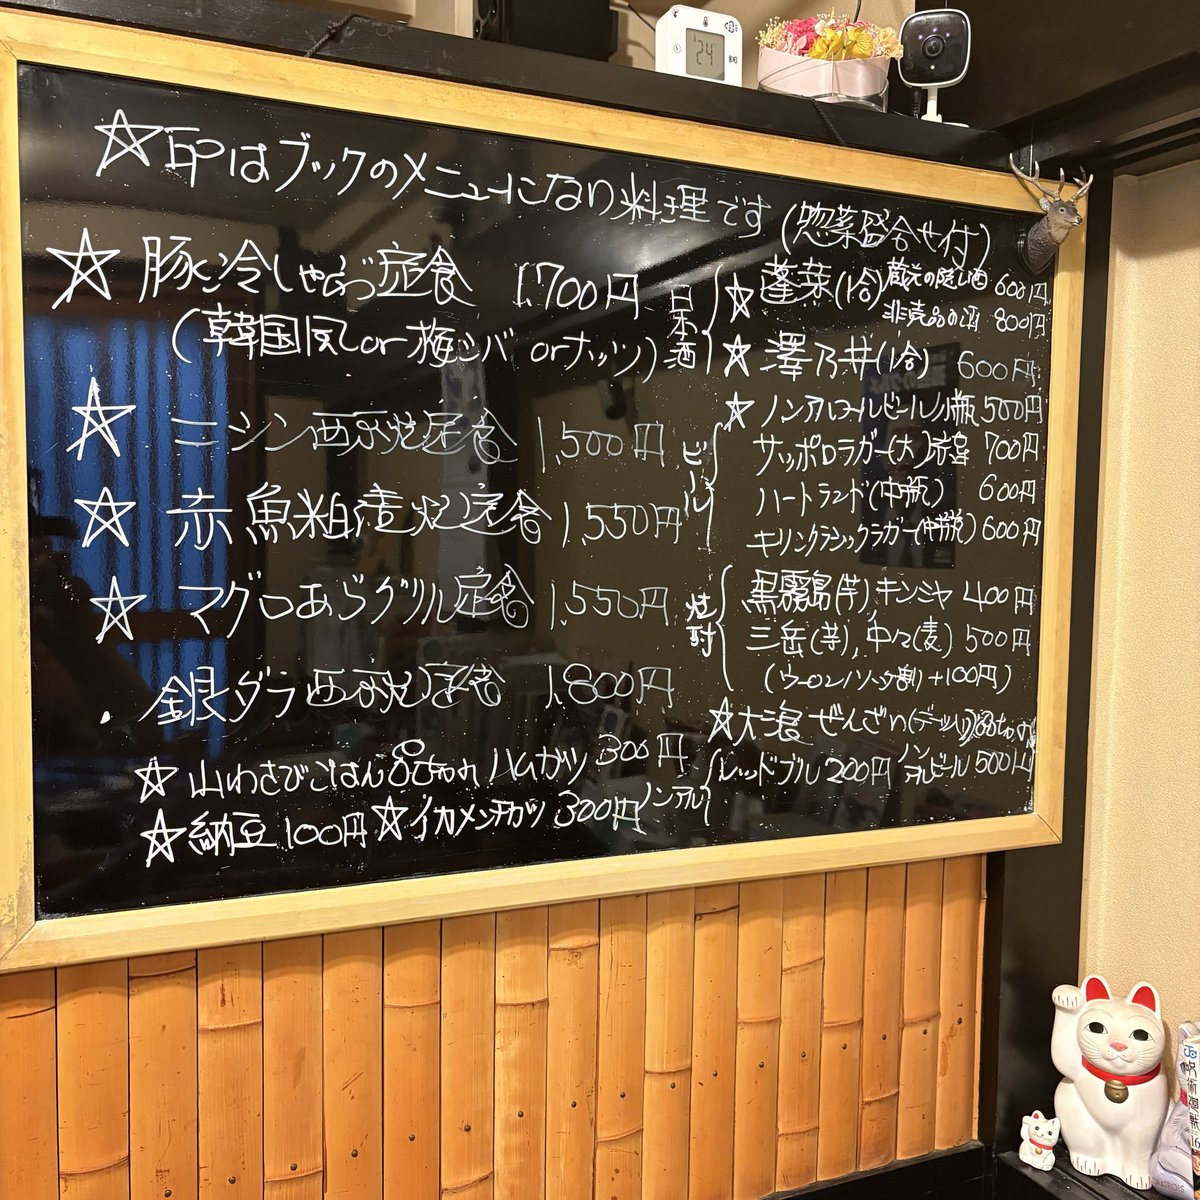 ☆印はブックのメニューにない料理です(惣菜盛合せ付)
☆豚冷しゃぶ定食 1.700円
(韓国風or梅シバorナッツ)
☆ニシン西京焼定食 1,500円
☆赤魚粕漬焼定食 1.550円
☆マグロあらグリル定食 1.550円
・銀ダラ西京焼定食 1.800円
☆山わさびごはん ハムカツ 300円
☆納豆100円☆イカメンチカツ 300円
日本酒
☆蓬莱(1合)蔵元の隠し酒 600円
非売品の酒 800円
☆澤乃井(1合) 600円
☆ノンアルコールビール小瓶500円
ビール
サッポロラガー(大)赤星 700円
ハートランド(中瓶) 600円
キリンクラシックラガー(中瓶)600円
焼酎
黒霧島(芋),キンミヤ 400円
三岳(芋),中々(麦)500円
(ウーロン/ソーダ割+100円)
☆大福 ぜんざい
ノンアル
レッドブル 200円 ノンアルビール500円
24
呪術廻戦
16